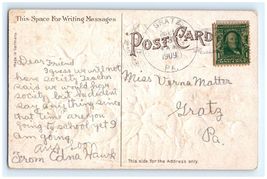 This Space For Writing Messages
POST CARD
GRATZ
1909
PA.
Dear Friend
I guess we will not
have society Teacher
said we would have
society but he didn't
say anything since
that time are you
going to school yet I
am going
From Edna Hawk
Miss Verna Matter
Gratz
Pa.
This side for the Address only.